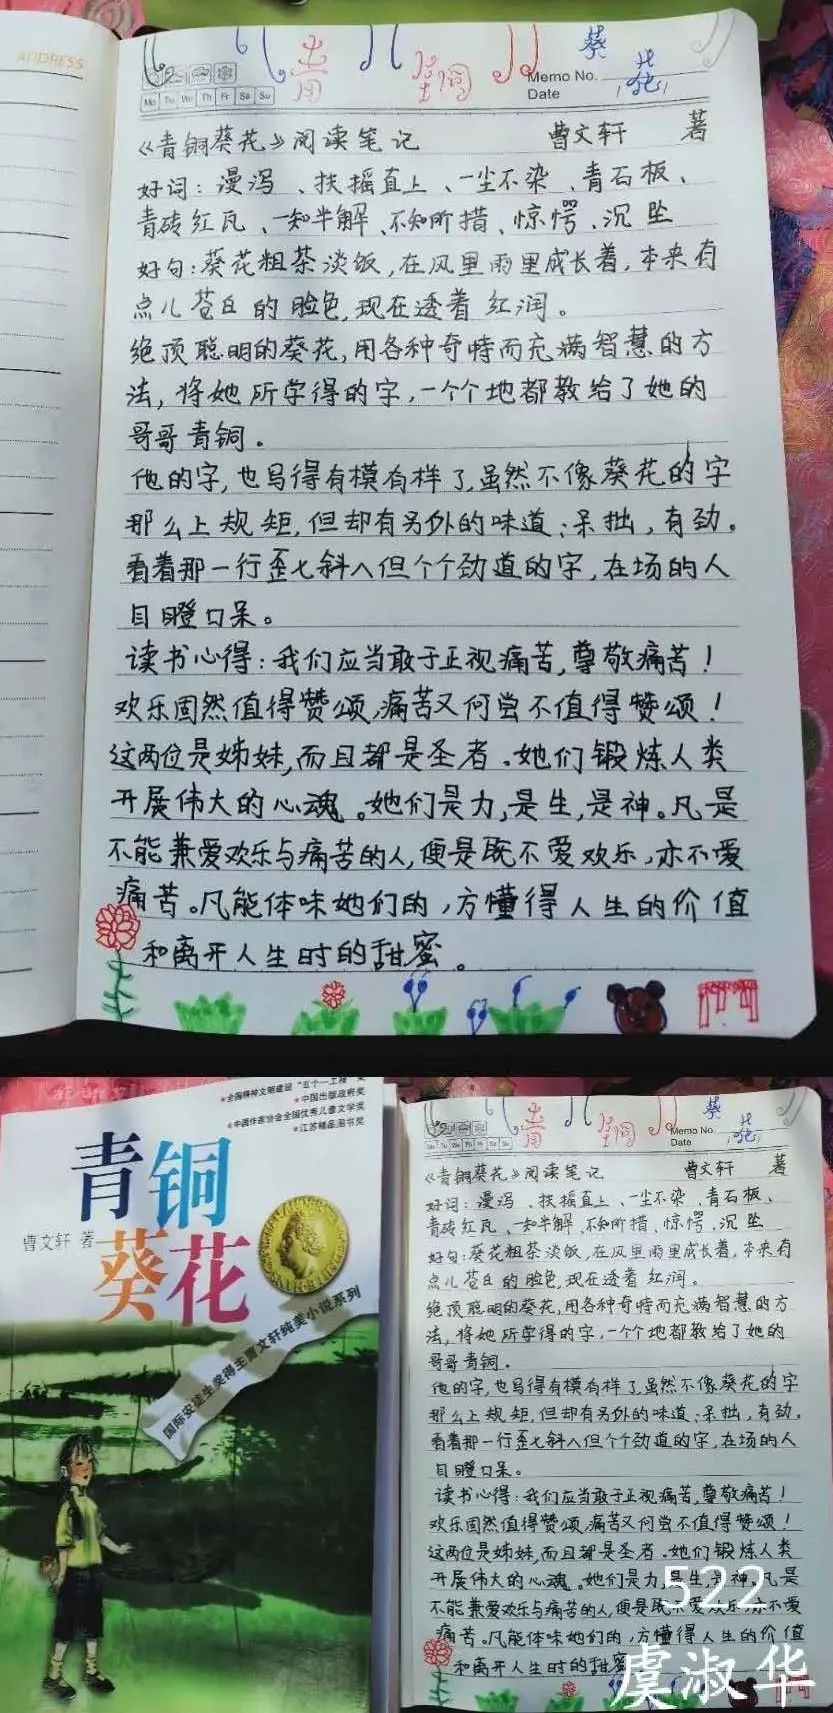 ADDRESS
青 铜 葵 花
Mo Tu We Th Fr Sa Su
Memo No.
Date
《青铜葵花》阅读笔记 曹文轩 著
好词：漫泻、扶摇直上、一尘不染、青石板、
青砖红瓦、一知半解、不知所措、惊愕、沉坠
好句：葵花粗茶淡饭，在风里雨里成长着，本来有
点儿苍白的脸色，现在透着红润。
绝顶聪明的葵花，用各种奇特而充满智慧的方
法，将她所学得的字，一个个地都教给了她的
哥哥青铜。
他的字，也写得有模有样了，虽然不像葵花的字
那么上规矩，但却有另外的味道：呆拙，有劲。
看着那一行歪七斜八但个个劲道的字，在场的人
目瞪口呆。
读书心得：我们应当敢于正视痛苦，尊敬痛苦！
欢乐固然值得赞颂，痛苦又何尝不值得赞颂！
这两位是姊妹，而且都是圣者。她们锻炼人类
开展伟大的心魂。她们是力，是生，是神。凡是
不能兼爱欢乐与痛苦的人，便是既不爱欢乐，亦不爱
痛苦。凡能体味她们的，方懂得人生的价值
和离开人生时的甜蜜。
★全国精神文明建设“五个一工程”奖
★中国出版政府奖
★中国作家协会全国优秀儿童文学奖
★江苏精品图书奖
青铜
葵花
曹文轩 著
国际安徒生奖得主曹文轩纯美小说系列
青 铜 葵 花
Mo Tu We Th Fr Sa Su
Memo No.
Date
《青铜葵花》阅读笔记 曹文轩 著
好词：漫泻、扶摇直上、一尘不染、青石板、
青砖红瓦、一知半解、不知所措、惊愕、沉坠
好句：葵花粗茶淡饭，在风里雨里成长着，本来有
点儿苍白的脸色，现在透着红润。
绝顶聪明的葵花，用各种奇特而充满智慧的方
法，将她所学得的字，一个个地都教给了她的
哥哥青铜。
他的字，也写得有模有样了，虽然不像葵花的字
那么上规矩，但却有另外的味道：呆拙，有劲。
看着那一行歪七斜八但个个劲道的字，在场的人
目瞪口呆。
读书心得：我们应当敢于正视痛苦，尊敬痛苦！
欢乐固然值得赞颂，痛苦又何尝不值得赞颂！
这两位是姊妹，而且都是圣者。她们锻炼人类
开展伟大的心魂。她们是力，是生，是神。凡是
不能兼爱欢乐与痛苦的人，便是既不爱欢乐，亦不爱
痛苦。凡能体味她们的，方懂得人生的价值
和离开人生时的甜蜜
522
虞淑华